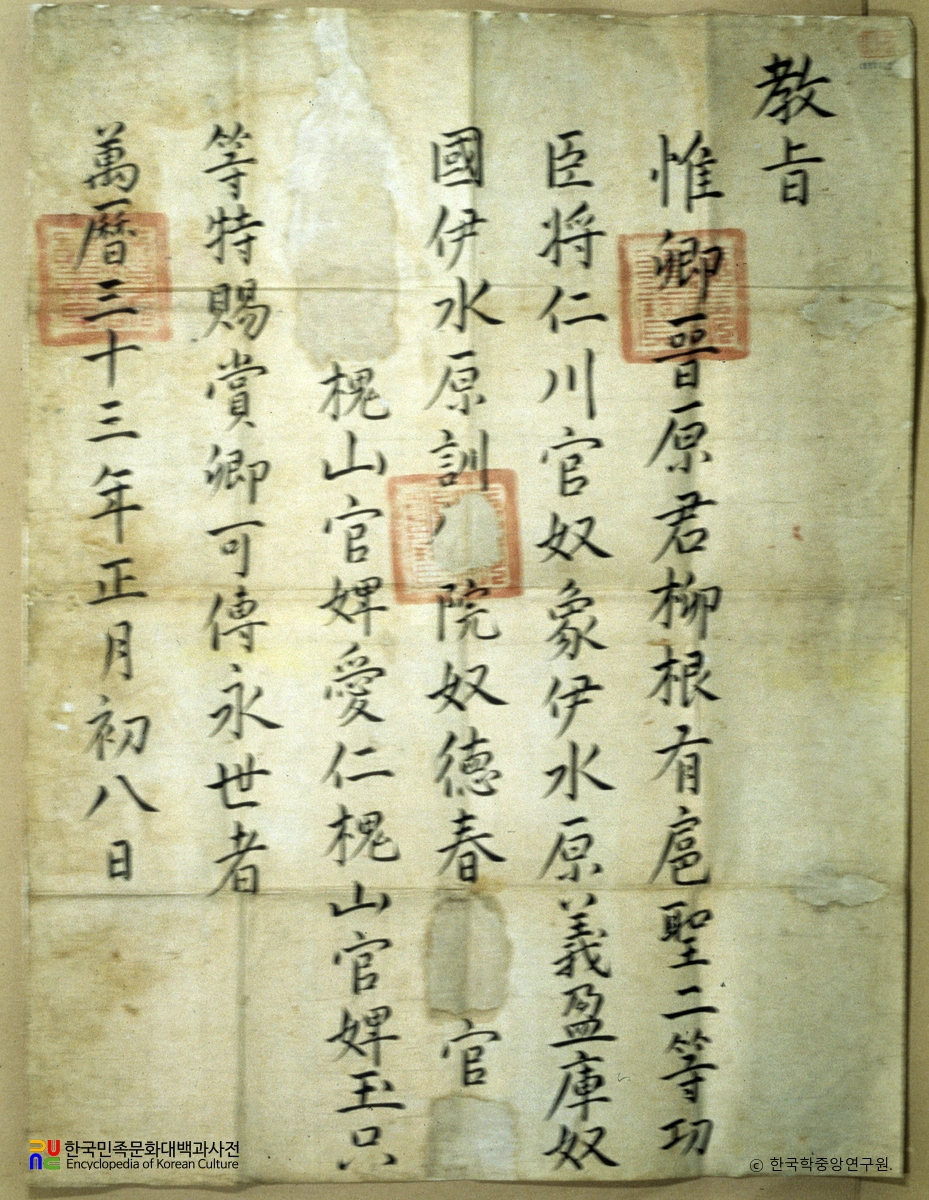 教旨
惟卿晉原君柳根有扈聖二等功
臣将仁川官奴象伊水原義盈庫奴
國伊水原訓院奴德春官
槐山官婢愛仁槐山官婢玉只
等特賜賞卿可傳永世者
萬曆三十三年正月初八日
한국민족문화대백과사전
Encyclopedia of Korean Culture
© 한국학중앙연구원.